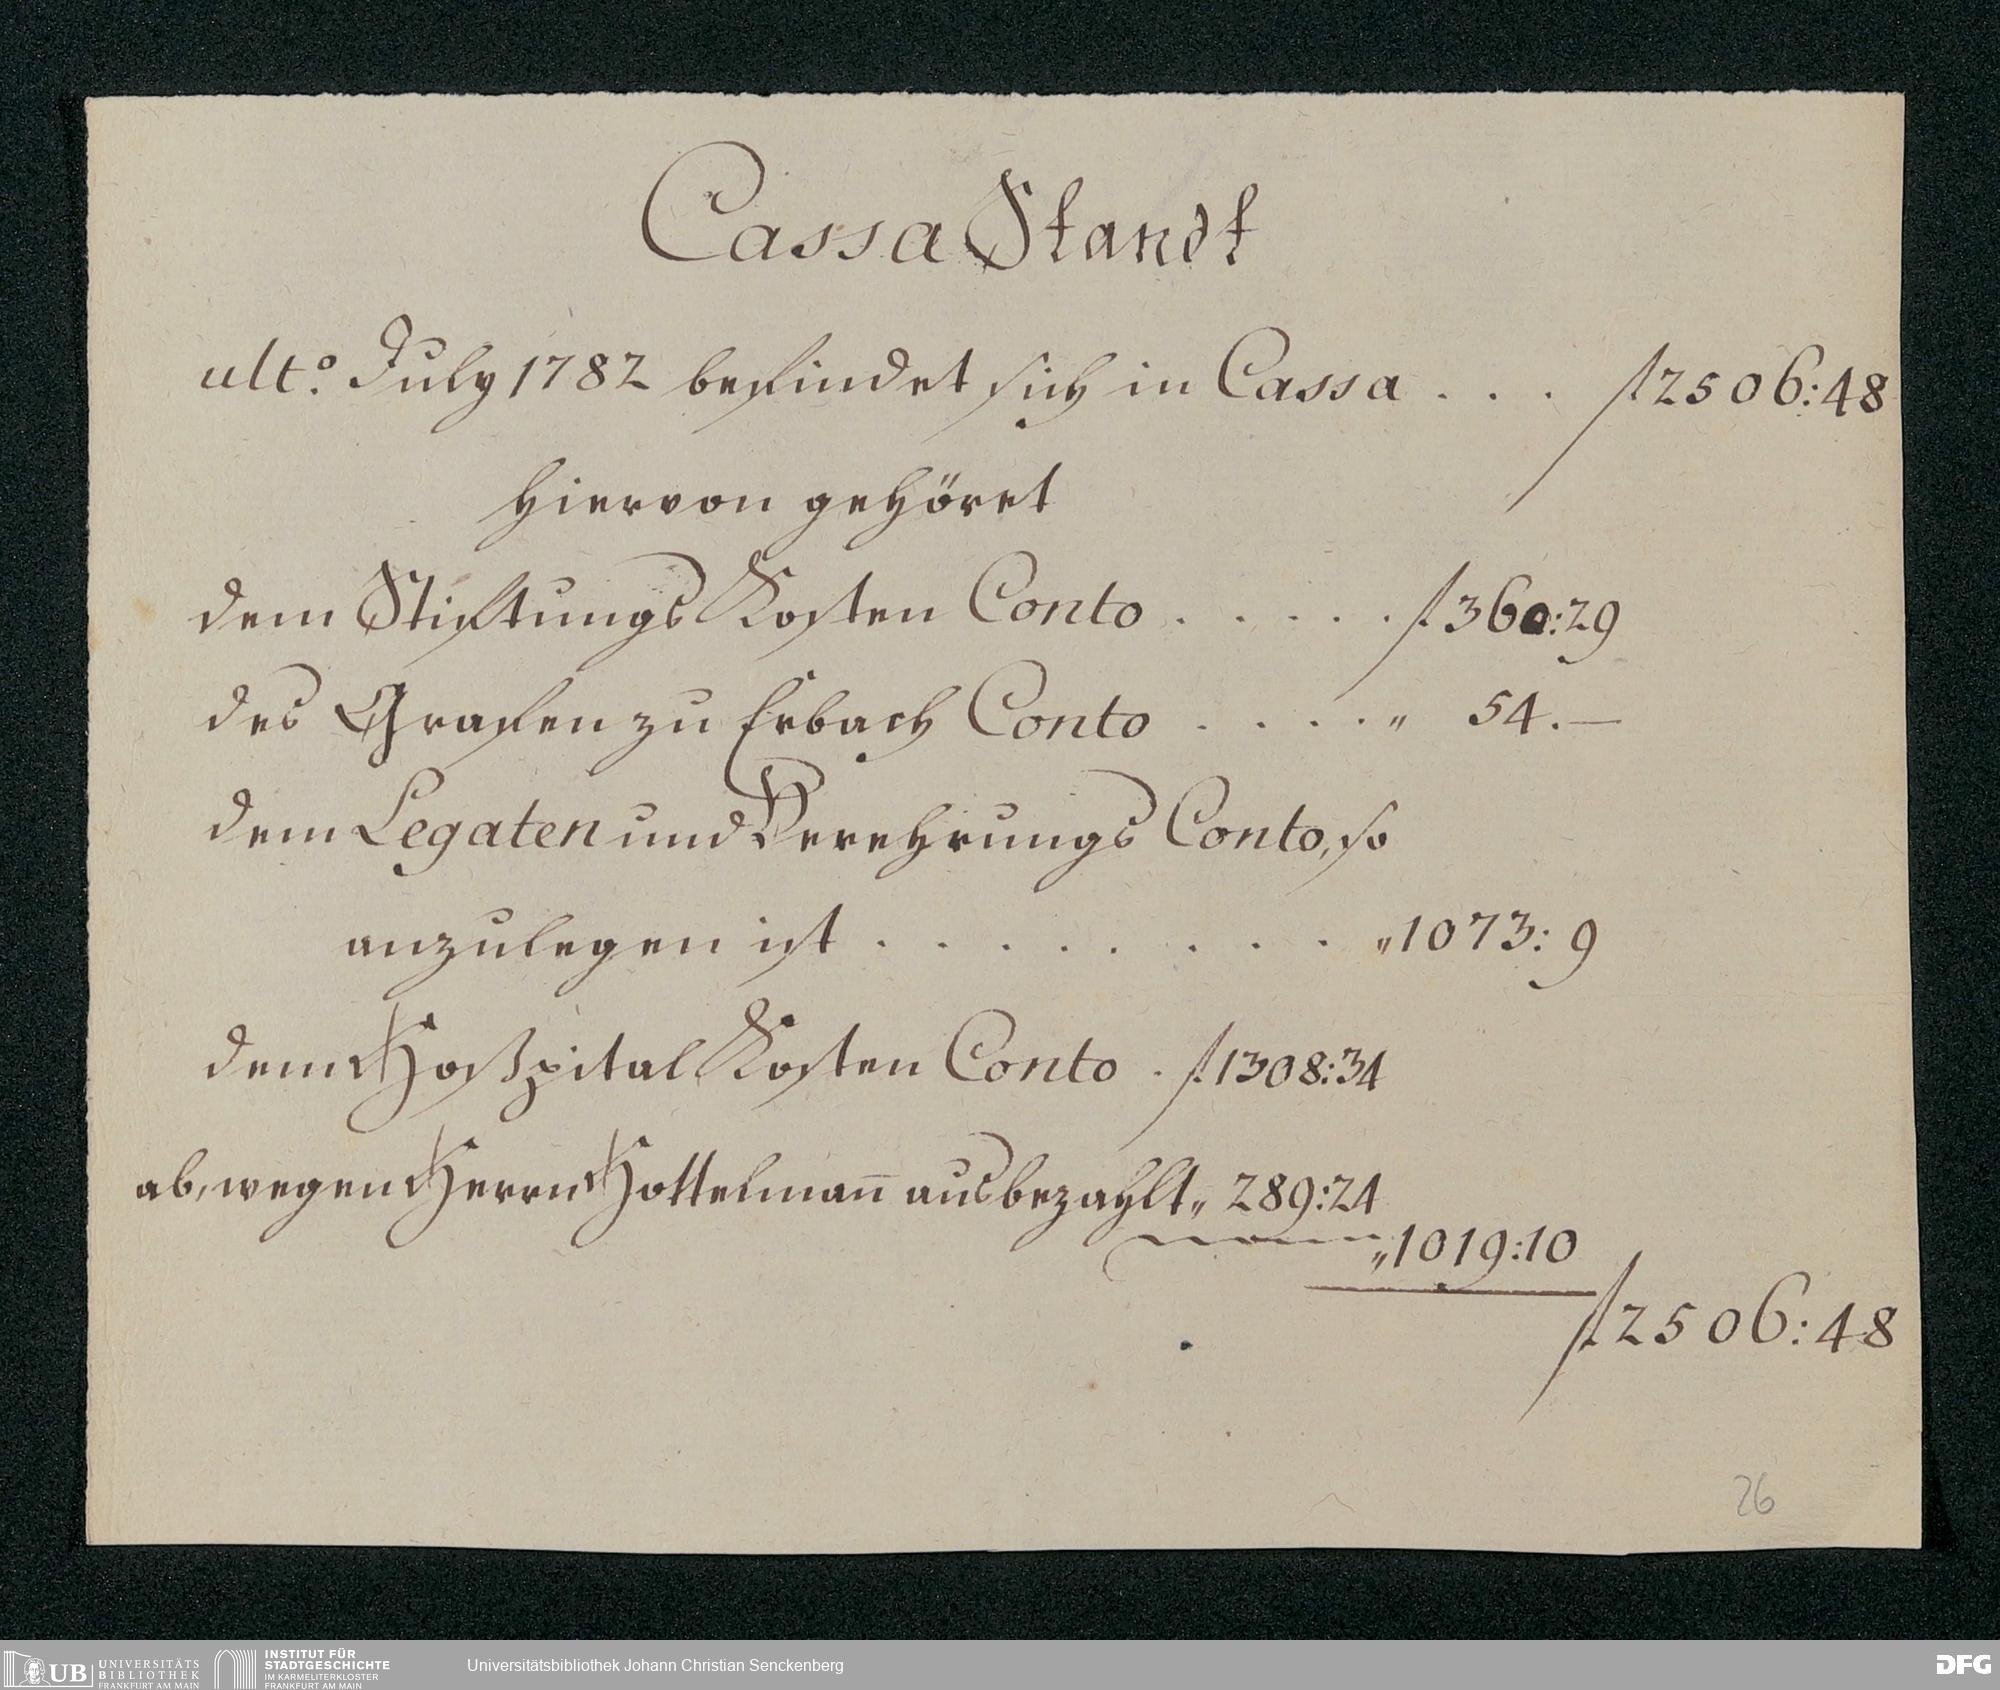 Cassa Standt
ult.º July 1782 befindet sich in Cassa . . . f 2506:48
hiervon gehöret
dem Stiftungs Kosten Conto . . . . . f. 360:29
des Grafen zu Erbach Conto . . . . „ 54.—
dem Legaten und Verehrungs Conto, so
anzulegen ist . . . . . . . . „ 1073: 9
dem Hoßpital Kosten Conto . f. 1308:34
ab, wegen Herrn Hottelman̅ ausbezahlt „ 289:24
„ 1019:10
f 2506:48
26
UB UNIVERSITÄTS
BIBLIOTHEK
FRANKFURT AM MAIN
INSTITUT FÜR
STADTGESCHICHTE
IM KARMELITERKLOSTER
FRANKFURT AM MAIN
Universitätsbibliothek Johann Christian Senckenberg
DFG